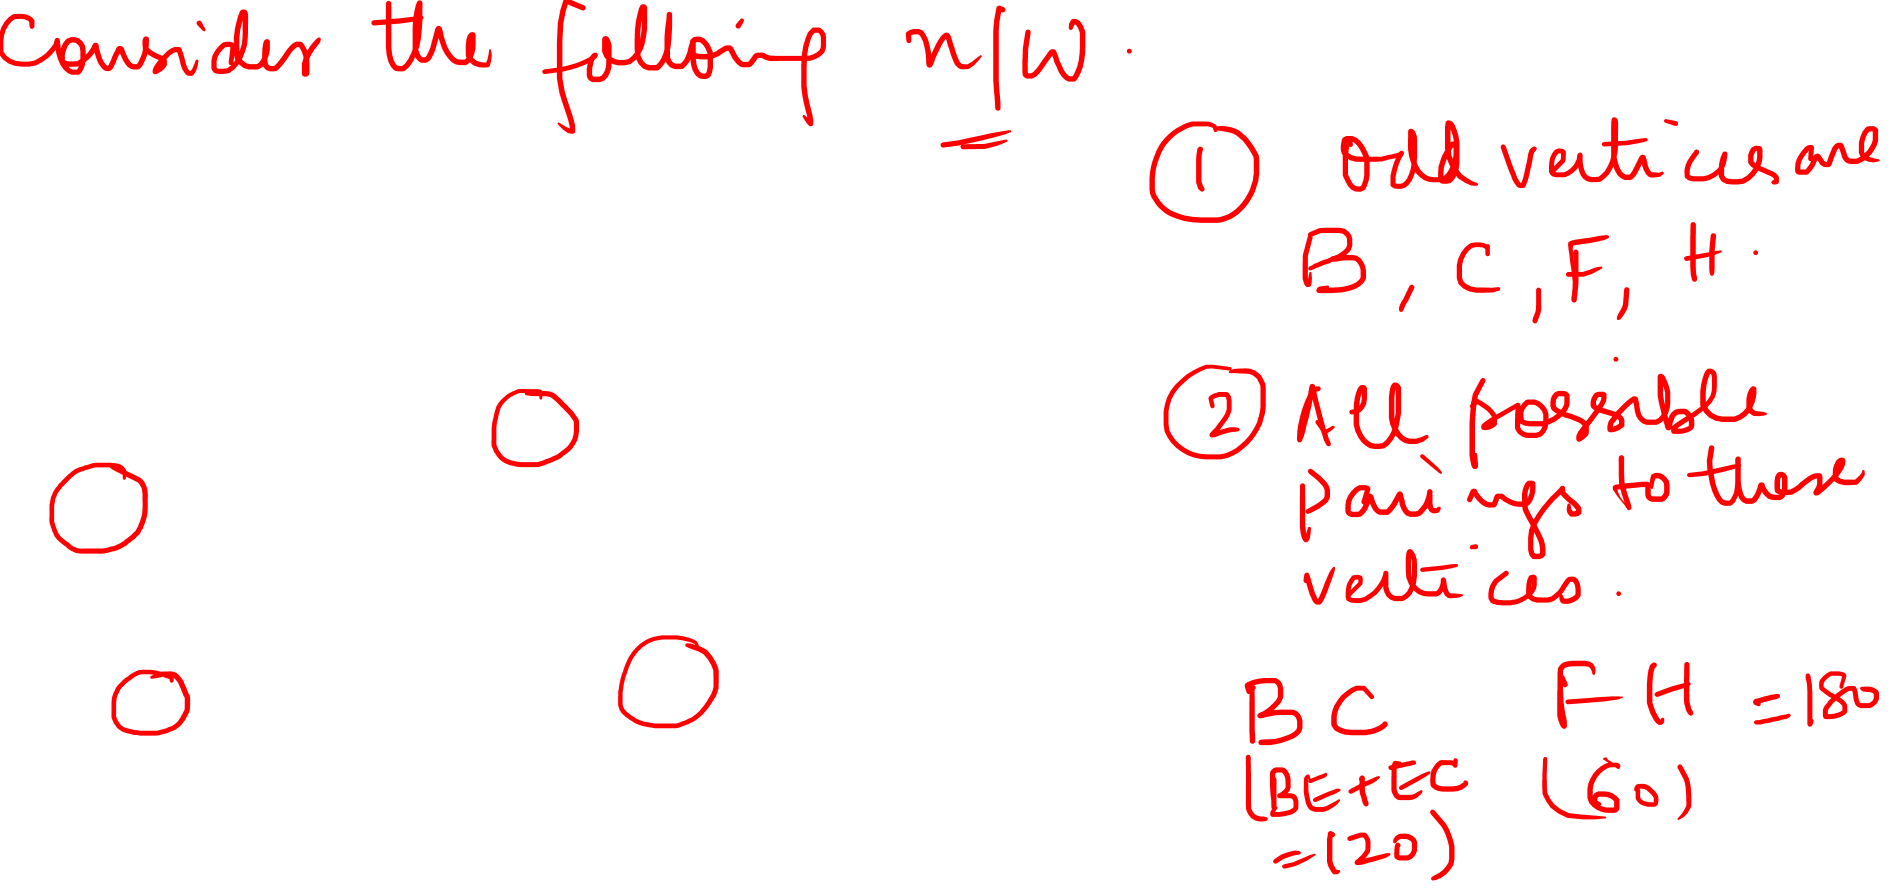 Consider the following n/w.
① Odd vertices are
B, C, F, H.
② All possible
parings to these
vertices.
BC FH = 180
(BE+EC (60)
= 120)